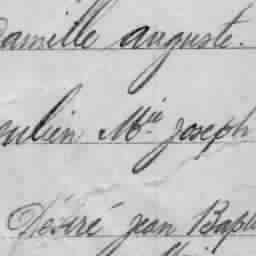 Camille auguste.
Mie joseph
Désiré jean Bapt